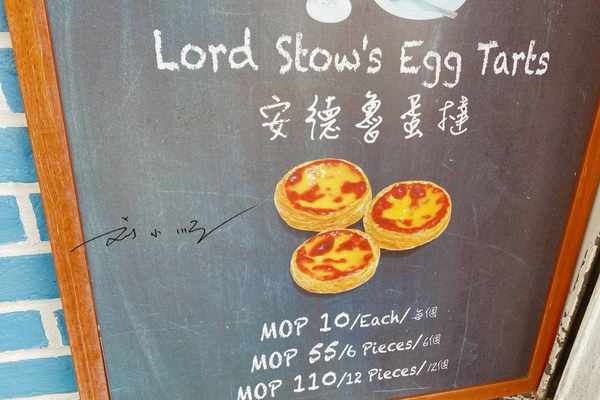 Lord Stow's Egg Tarts
安德魯蛋撻
MOP 10/Each/每個
MOP 55/6 Pieces/6個
MOP 110/12 Pieces/12個